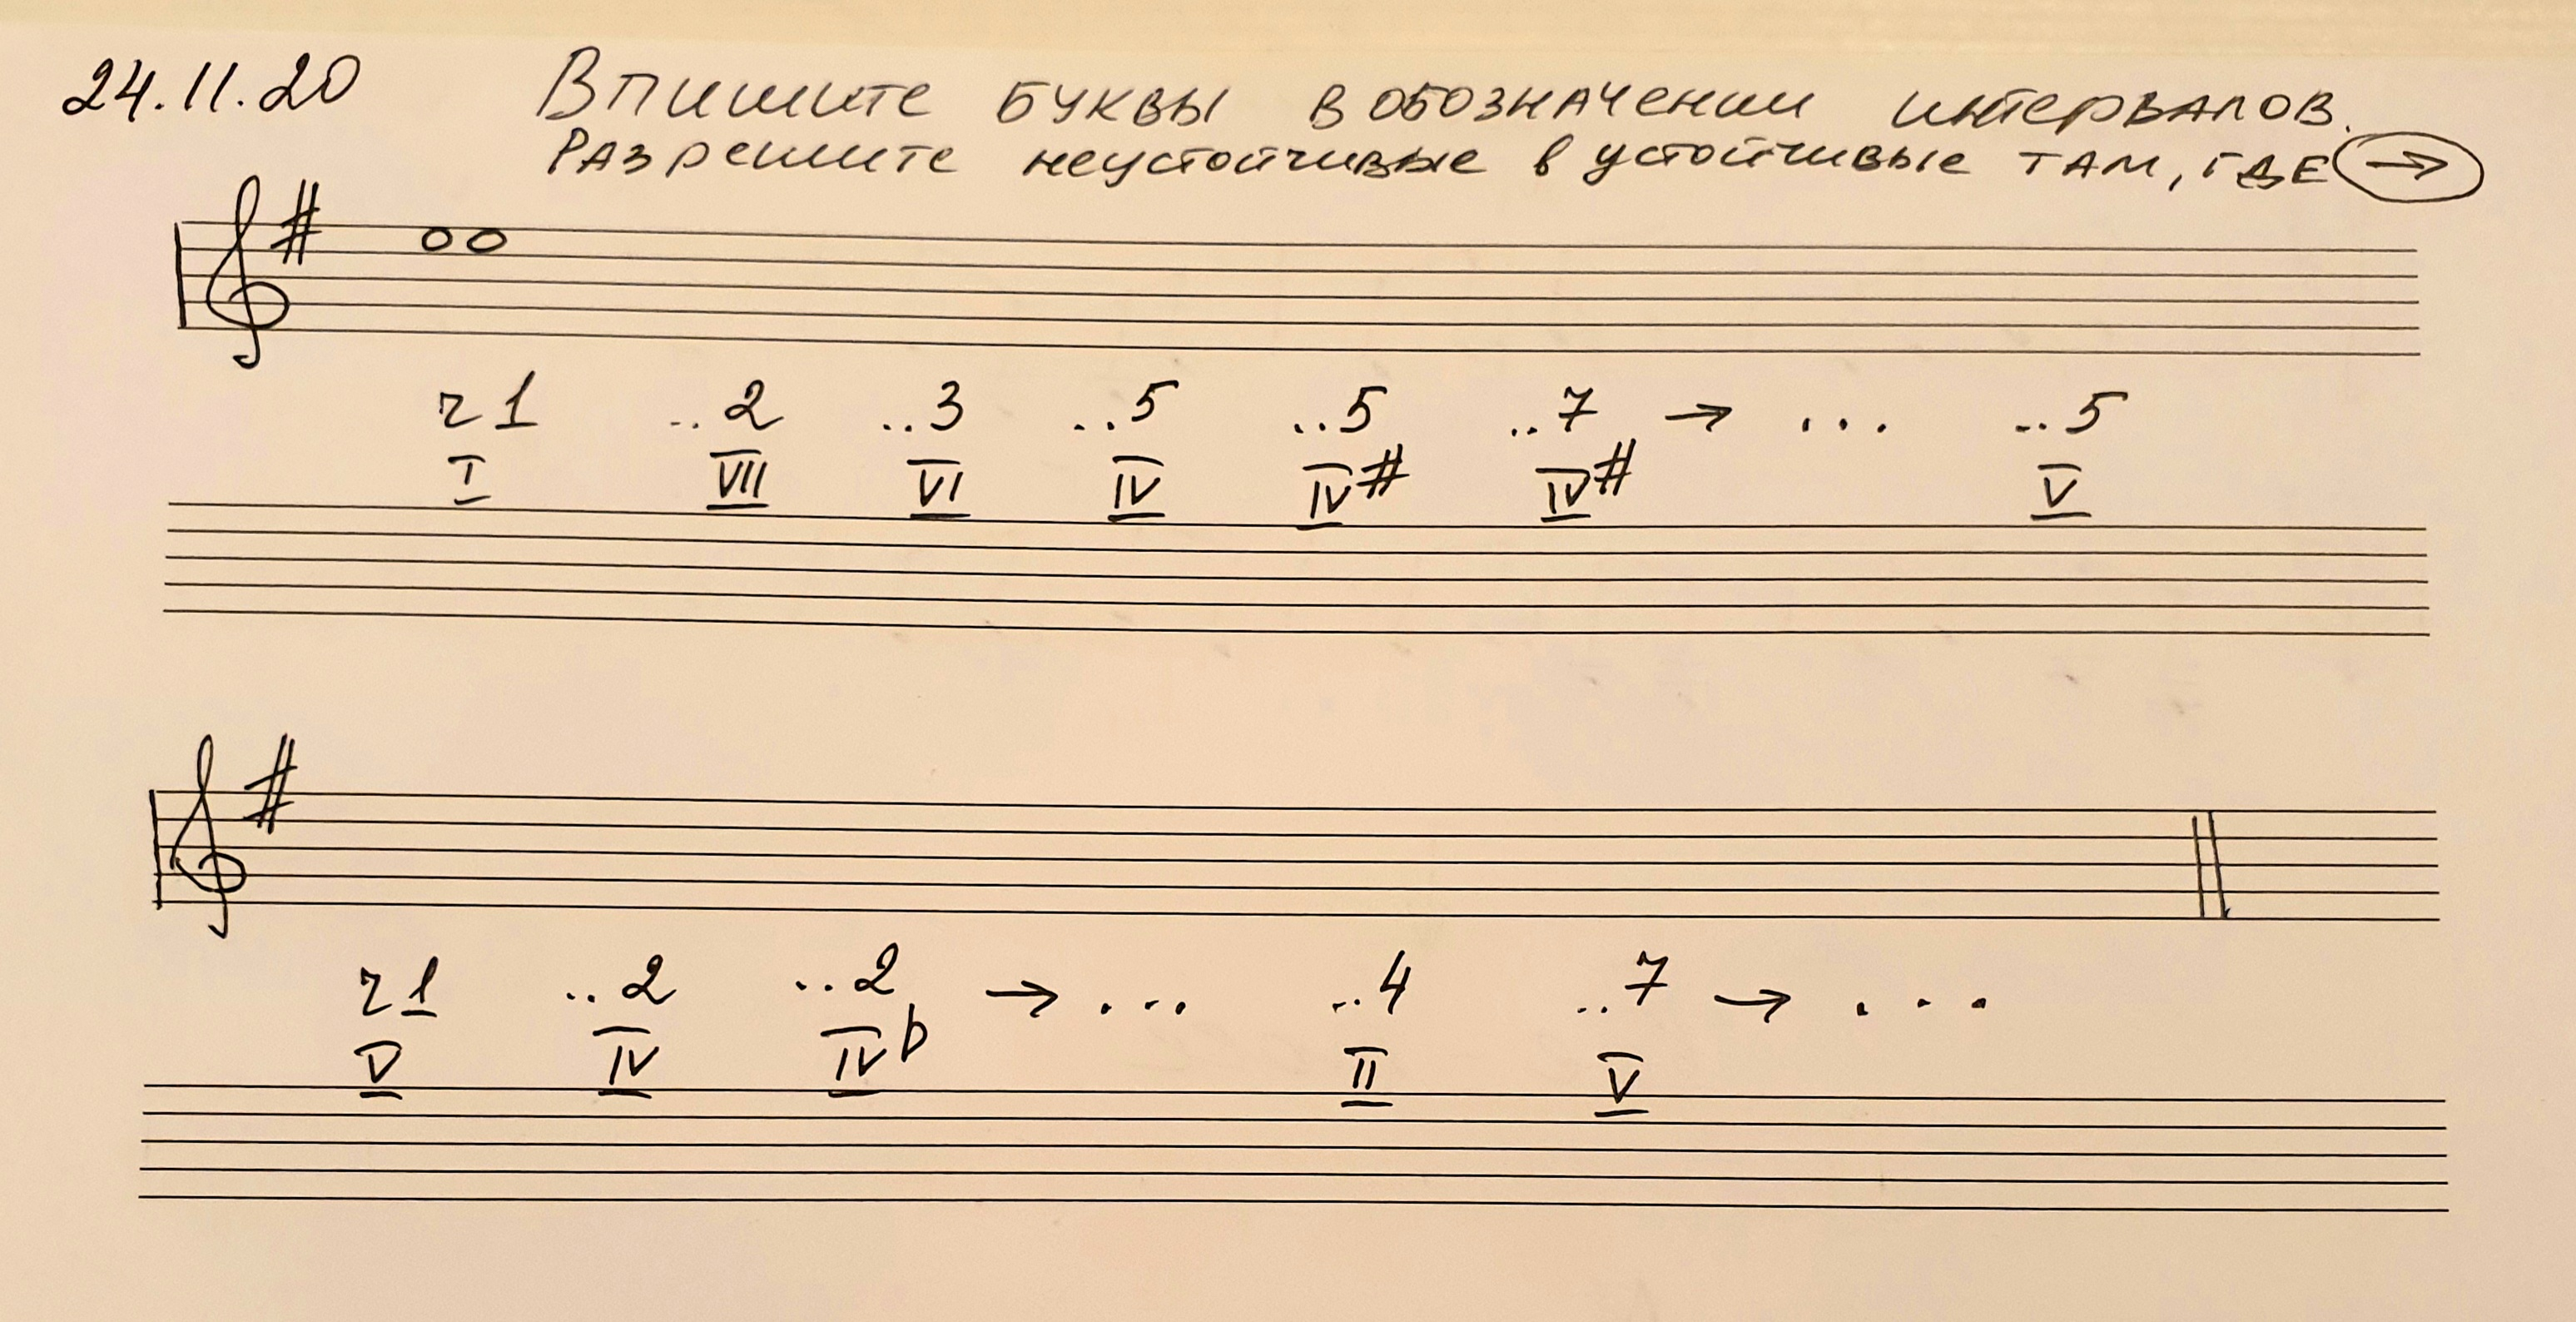 24.11.20 Впишите буквы в обозначении интервалов.
Разрешите неустойчивые в устойчивые там, где →
ч1 ..2 ..3 ..5 ..5 ..7 → ... ..5
I VII VI IV IV# IV# V
ч1 ..2 ..2 → ... ..4 ..7 → ...
V IV IV♭ II V